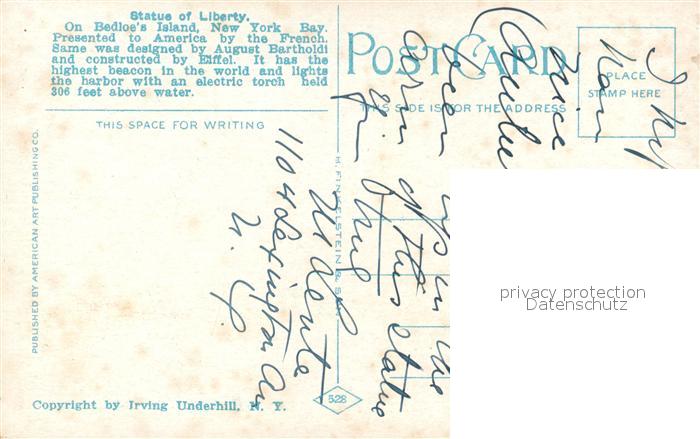 Statue of Liberty.
On Bedloe's Island, New York Bay.
Presented to America by the French.
Same was designed by August Bartholdi
and constructed by Eiffel. It has the
highest beacon in the world and lights
the harbor with an electric torch held
306 feet above water.
POST CARD
THIS SIDE IS FOR THE ADDRESS
PLACE
STAMP HERE
THIS SPACE FOR WRITING
PUBLISHED BY AMERICAN ART PUBLISHING CO.
H. FINKELSTEIN & SON
been up in the
arm of this statue
1104 Lexington Av
N. Y.
privacy protection
Datenschutz
528
Copyright by Irving Underhill, N. Y.